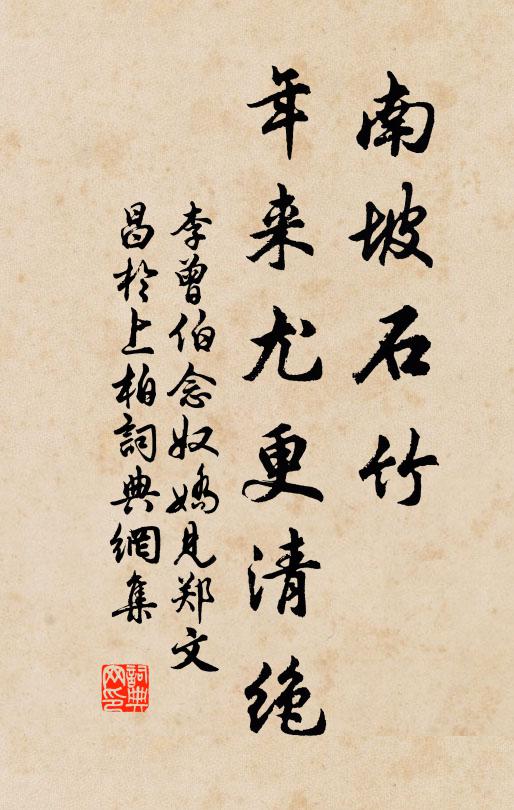 南坡石竹
年来尤更清绝
李曾伯念奴娇见郑文
昌於上柏詞典網集
詞典
网印